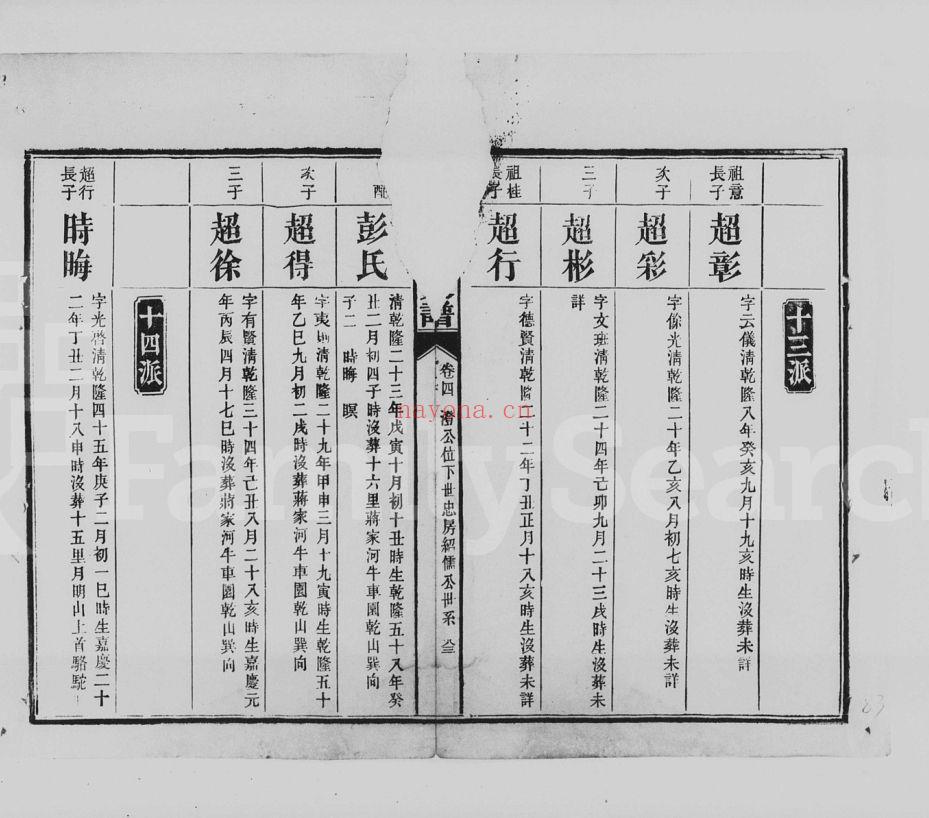 十三派
祖意
長子
超彰
字云儀清乾隆八年癸亥九月十九亥時生沒葬未詳
次子
超彩
字條光清乾隆二十年乙亥八月初七亥時生沒葬未詳
三子
超彬
字文班清乾隆二十四年己卯九月二十三戌時生沒葬未
詳
祖桂
長子
超行
字德賢清乾隆二十二年丁丑正月十八亥時生沒葬未詳
譜
卷四
澄公位下世忠房紹儒公世系
配
彭氏
清乾隆二十三年戊寅十月初十丑時生乾隆五十八年癸
丑二月初四子時沒葬十六里蔣家河牛車園乾山巽向
子二 時晦 暝
次子
超得
字夷則清乾隆二十九年甲申三月十九寅時生乾隆五十
年乙巳九月初二戌時沒葬蔣家河牛車園乾山巽向
三子
超徐
字有賢清乾隆三十四年己丑八月二十八亥時生嘉慶元
年丙辰四月十七巳時沒葬蔣家河牛車園乾山巽向
十四派
超行
長子
時晦
字光啓清乾隆四十五年庚子二月初一巳時生嘉慶二十
二年丁丑二月十八申時沒葬十五里月明山上首駱駝
83
nayona.cn
FamilySearch